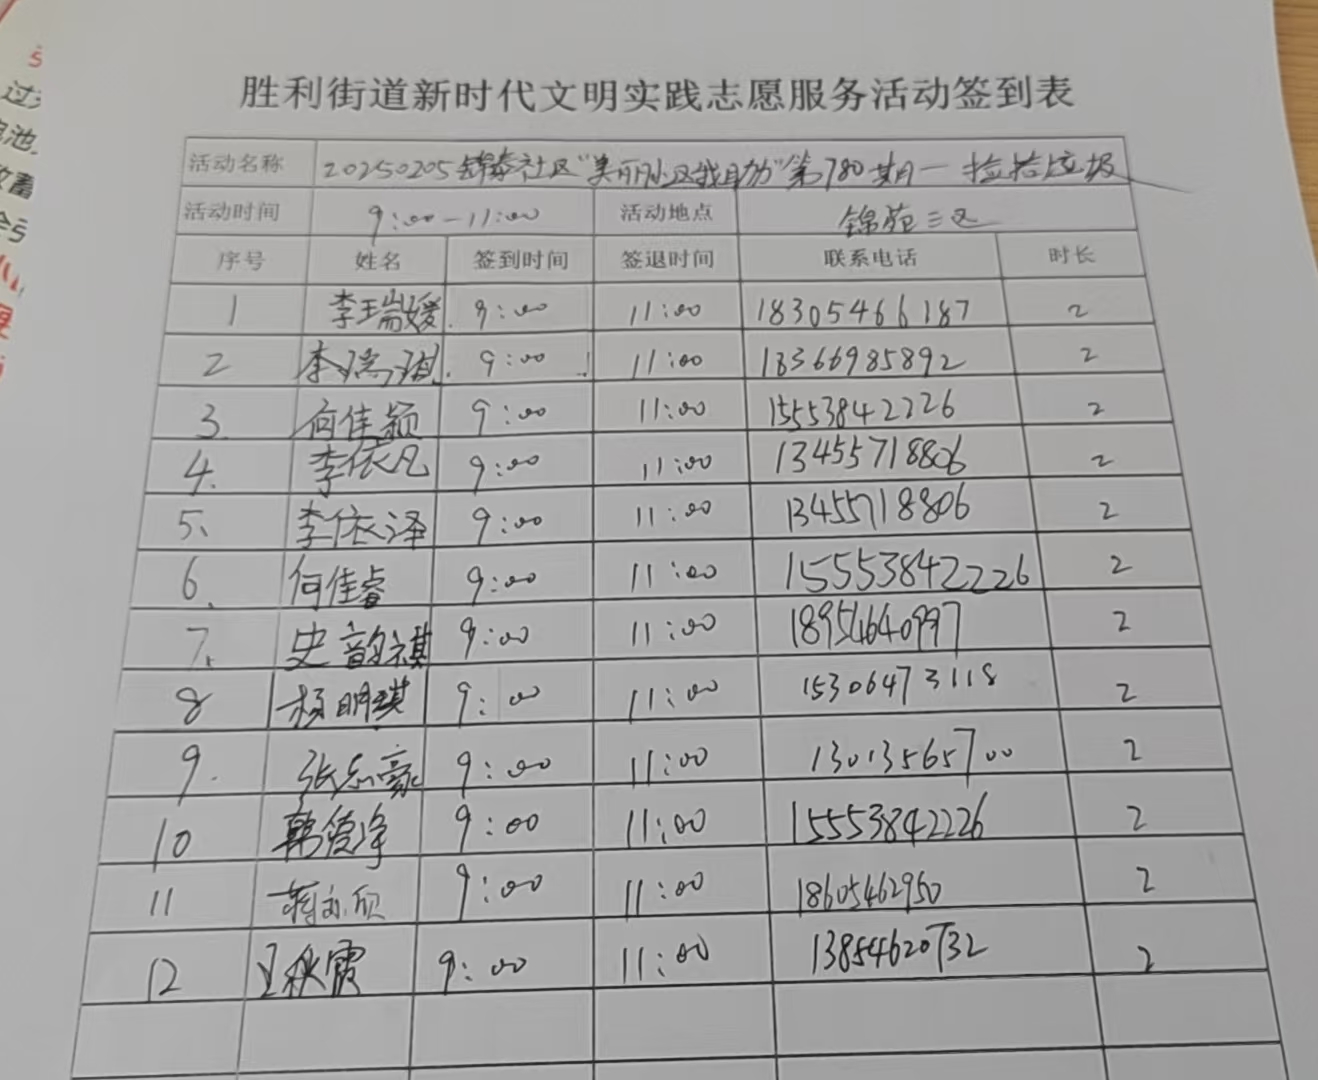 胜利街道新时代文明实践志愿服务活动签到表
活动名称 20250205锦泰社区"美丽小区我自分"第780期一捡拾垃圾
活动时间 9:00-11:00 活动地点 锦苑三区
序号 姓名 签到时间 签退时间 联系电话 时长
1 李瑞媛 9:00 11:00 18305466187 2
2 李瑞琪 9:00 11:00 18366985892 2
3. 何佳颖 9:00 11:00 15553842226 2
4. 李依凡 9:00 11:00 13455718806 2
5、 李依泽 9:00 11:00 13455718806 2
6、 何佳睿 9:00 11:00 15553842226 2
7. 史韵祺 9:00 11:00 18954640997 2
8 杨明琪 9:00 11:00 15306473118 2
9. 张志豪 9:00 11:00 13013565700 2
10 韩 9:00 11:00 15553842226 2
11 蒋 欣 9:00 11:00 18605462950 2
12 王秋霞 9:00 11:00 13854620732 2